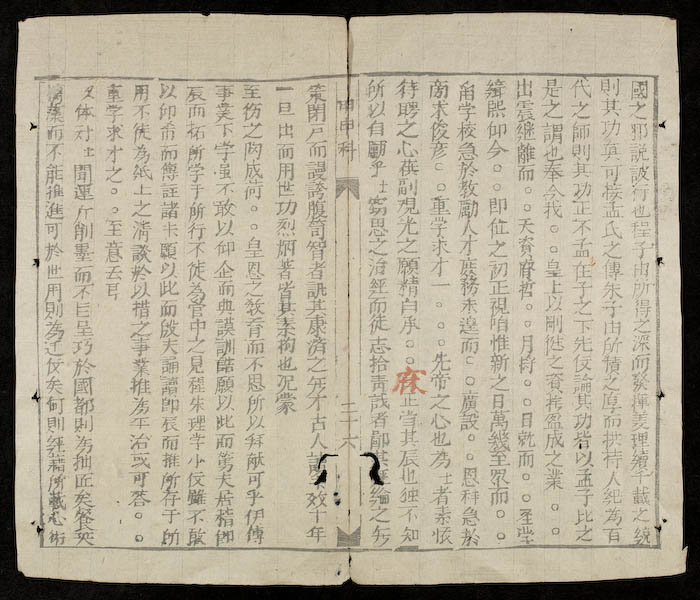 國之邪説詖行也程子由所得之深而發揮義理續千載之統
則其功眞可接孟氏之傳朱子由所積之厚而扶持人紀為百
代之師則其功正不孟在子之下先侫論其功皆以孟子比之
是之謂也奉今我。。皇上以剛徤之資撫盈成之業。。
出震継離而。。天資睿哲。。月將。。日就而。。圣学
緝熙仰今。。即位之初正視咱惟新之日萬幾至衆而。。
学校急於教勵人才庶務未遑而。。廣設。。恩科急於
啇求俊彦。。重学求才一。。先帝之心也為士者素懷
待聘之心副观光之願精白承。。庥正当其辰也独不知
所以自願乎士窃思之治經而徒志拾青識者鄙其綸之
甲申科
二十六
策閉戸而謾誇腹笥智者誚其康濟之無才古人效十年
一旦出而用世功烈炳著皆其素抱也况蒙
至伤之陶成荷。。皇恩之敎育而不思所以拜献可乎伊傅
事業下学虽不敢以仰企而典謨訓誥願以此而篤夫居稽即
辰而拓所学于所行不徒為管中之見程朱理学小侫雖不敢
以仰希而傳註諸书願以此而啟夫誦讀即辰而推所存于所
用不徒為紙上之清談於以措之事業推為平治或可答。。
重学求才之。。至意云耳
又体对士聞運斤削墨而不目呈巧於國都則為拙匠矣餐英
而不能推進可於世用則為迂侫矣何則經籍所藏心術